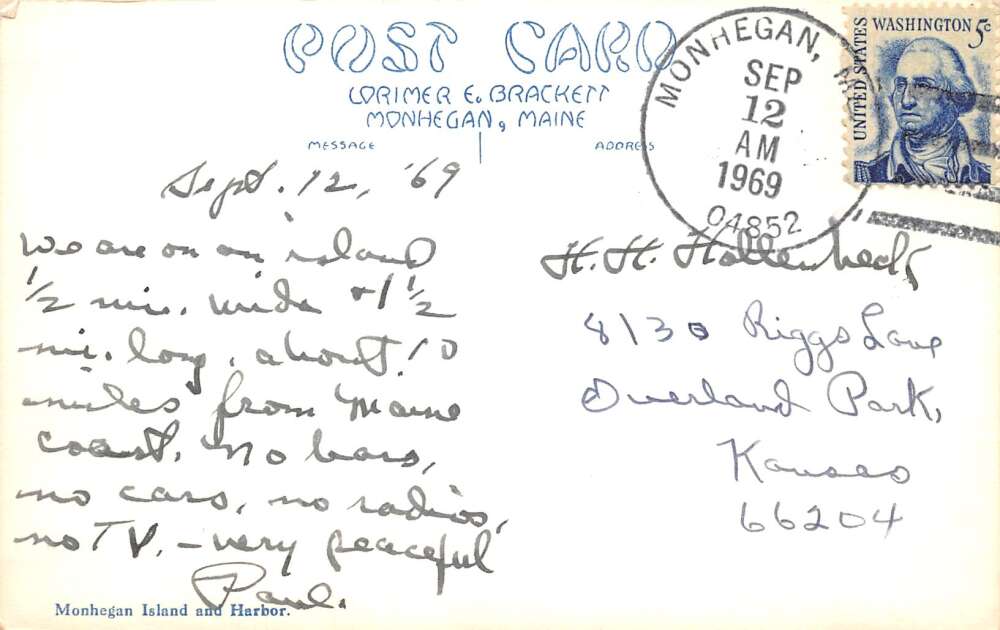 POST CARD
LORIMER E. BRACKETT
MONHEGAN, MAINE
MESSAGE
ADDRESS
MONHEGAN, ME
SEP
12
AM
1969
04852
UNITED STATES
WASHINGTON 5c
Sept. 12, '69
We are on an island
1/2 mi. wide + 1 1/2
mi. long, about 10
miles from Maine
coast. No bars,
no cars, no radios,
no TV. - very peaceful
Paul.
H. H. Hollenbeck,
8130 Riggs Lane
Overland Park,
Kansas
66204
Monhegan Island and Harbor.